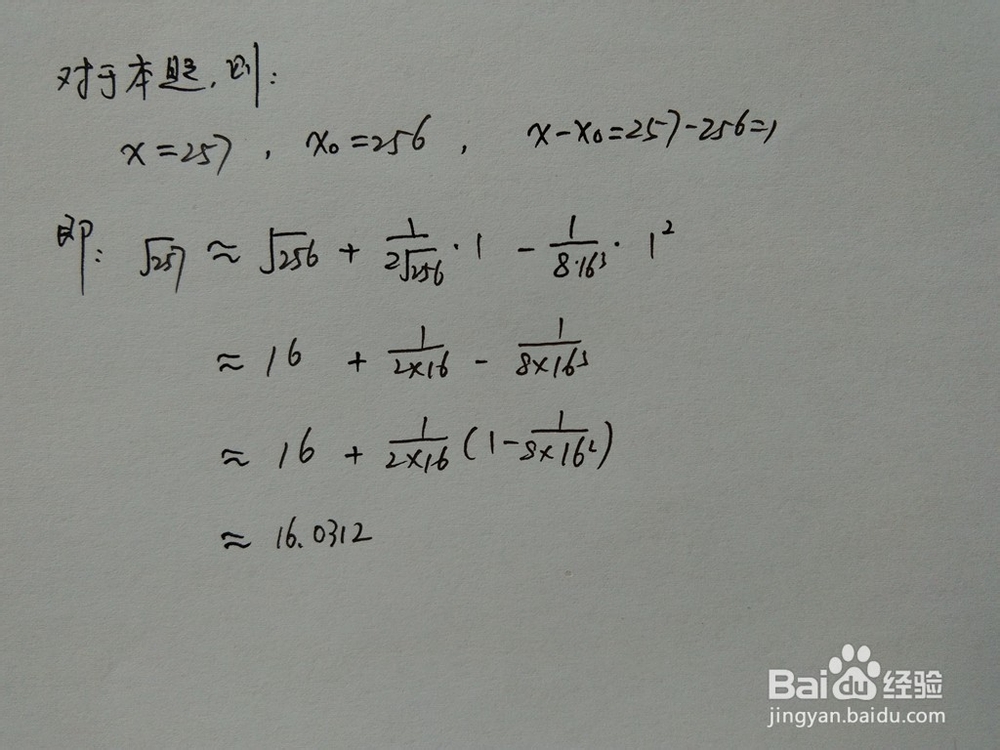 对于本题,则:
x=257, x₀=256, x-x₀=257-256=1
即: √257 ≈ √256 + 1/(2√256)·1 - 1/(8·16³)·1²
≈ 16 + 1/(2×16) - 1/(8×16³)
≈ 16 + 1/(2×16) (1 - 1/(8×16²))
≈ 16.0312
Baidu经验
jingyan.baidu.com